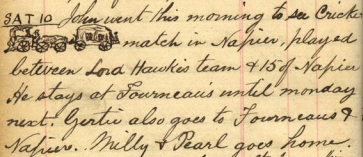 SAT 10 John went this morning to see Cricke
match in Napier, played
between Lord Hawkes team & 15 of Napier
He stays at Fourneaus until monday
next. Gertie also goes to Fourneaus &
Napier. Milly & Pearl goes home.